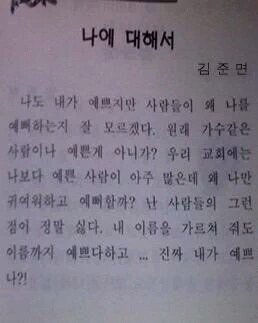 나에 대해서
김 준 면
나도 내가 예쁘지만 사람들이 왜 나를
예뻐하는지 잘 모르겠다. 원래 가수같은
사람이나 예쁜게 아니가? 우리 교회에는
나보다 예쁜 사람이 아주 많은데 왜 나만
귀여워하고 예뻐할까? 난 사람들의 그런
점이 정말 싫다. 내 이름을 가르쳐 줘도
이름까지 예쁘다하고 ... 진짜 내가 예쁘
나?!